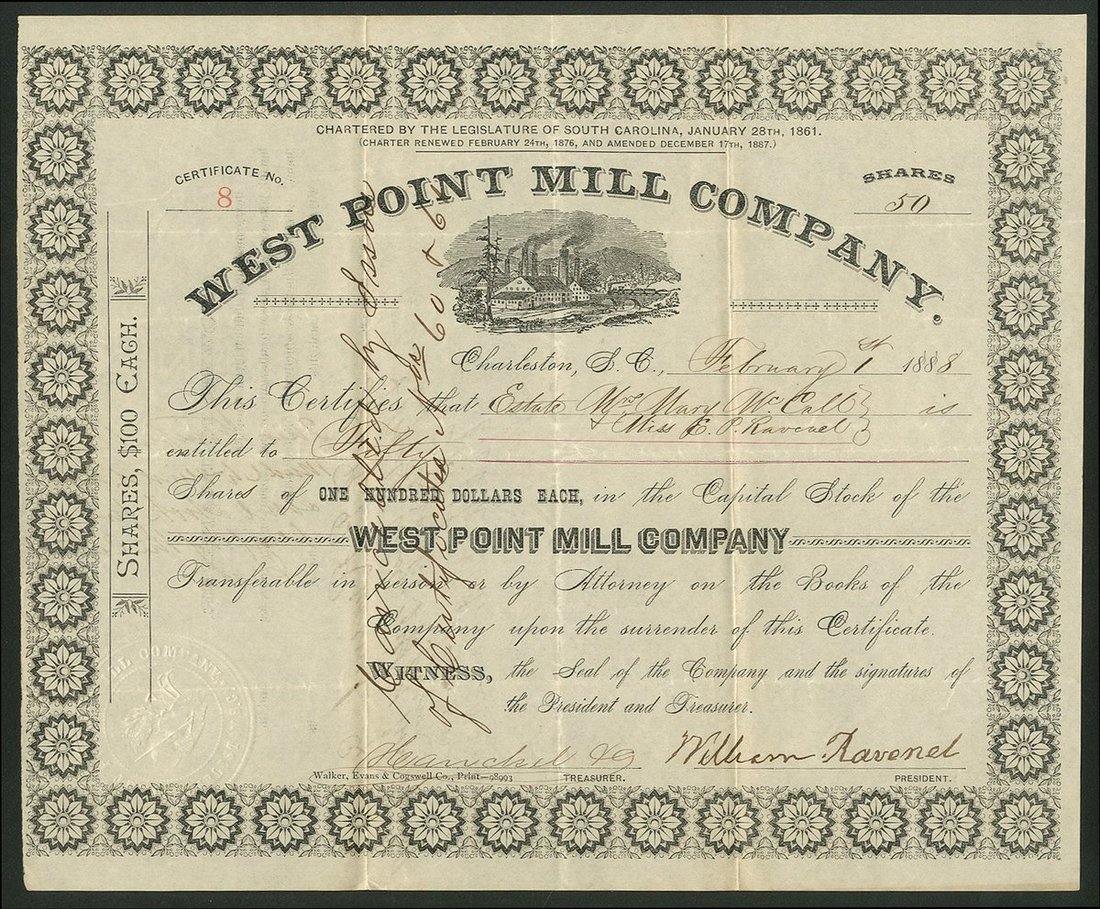 CHARTERED BY THE LEGISLATURE OF SOUTH CAROLINA, JANUARY 28TH, 1861.
(CHARTER RENEWED FEBRUARY 24TH, 1876, AND AMENDED DECEMBER 17TH, 1887.)
CERTIFICATE No.
8
SHARES
50
WEST POINT MILL COMPANY.
SHARES, $100 EACH.
Charleston, S. C., February 1st 1888
This Certifies that Estate Mrs Mary McCall } is
& Miss E. P. Ravenel }
entitled to Fifty
Shares of ONE HUNDRED DOLLARS EACH, in the Capital Stock of the
WEST POINT MILL COMPANY
Transferable in person or by Attorney on the Books of the
Company upon the surrender of this Certificate.
WITNESS, the Seal of the Company and the signatures of
the President and Treasurer.
William Ravenel
Walker, Evans & Cogswell Co., Print—98993
TREASURER.
PRESIDENT.
Cancelled by Issue
of Certificates Nos 60 & 61